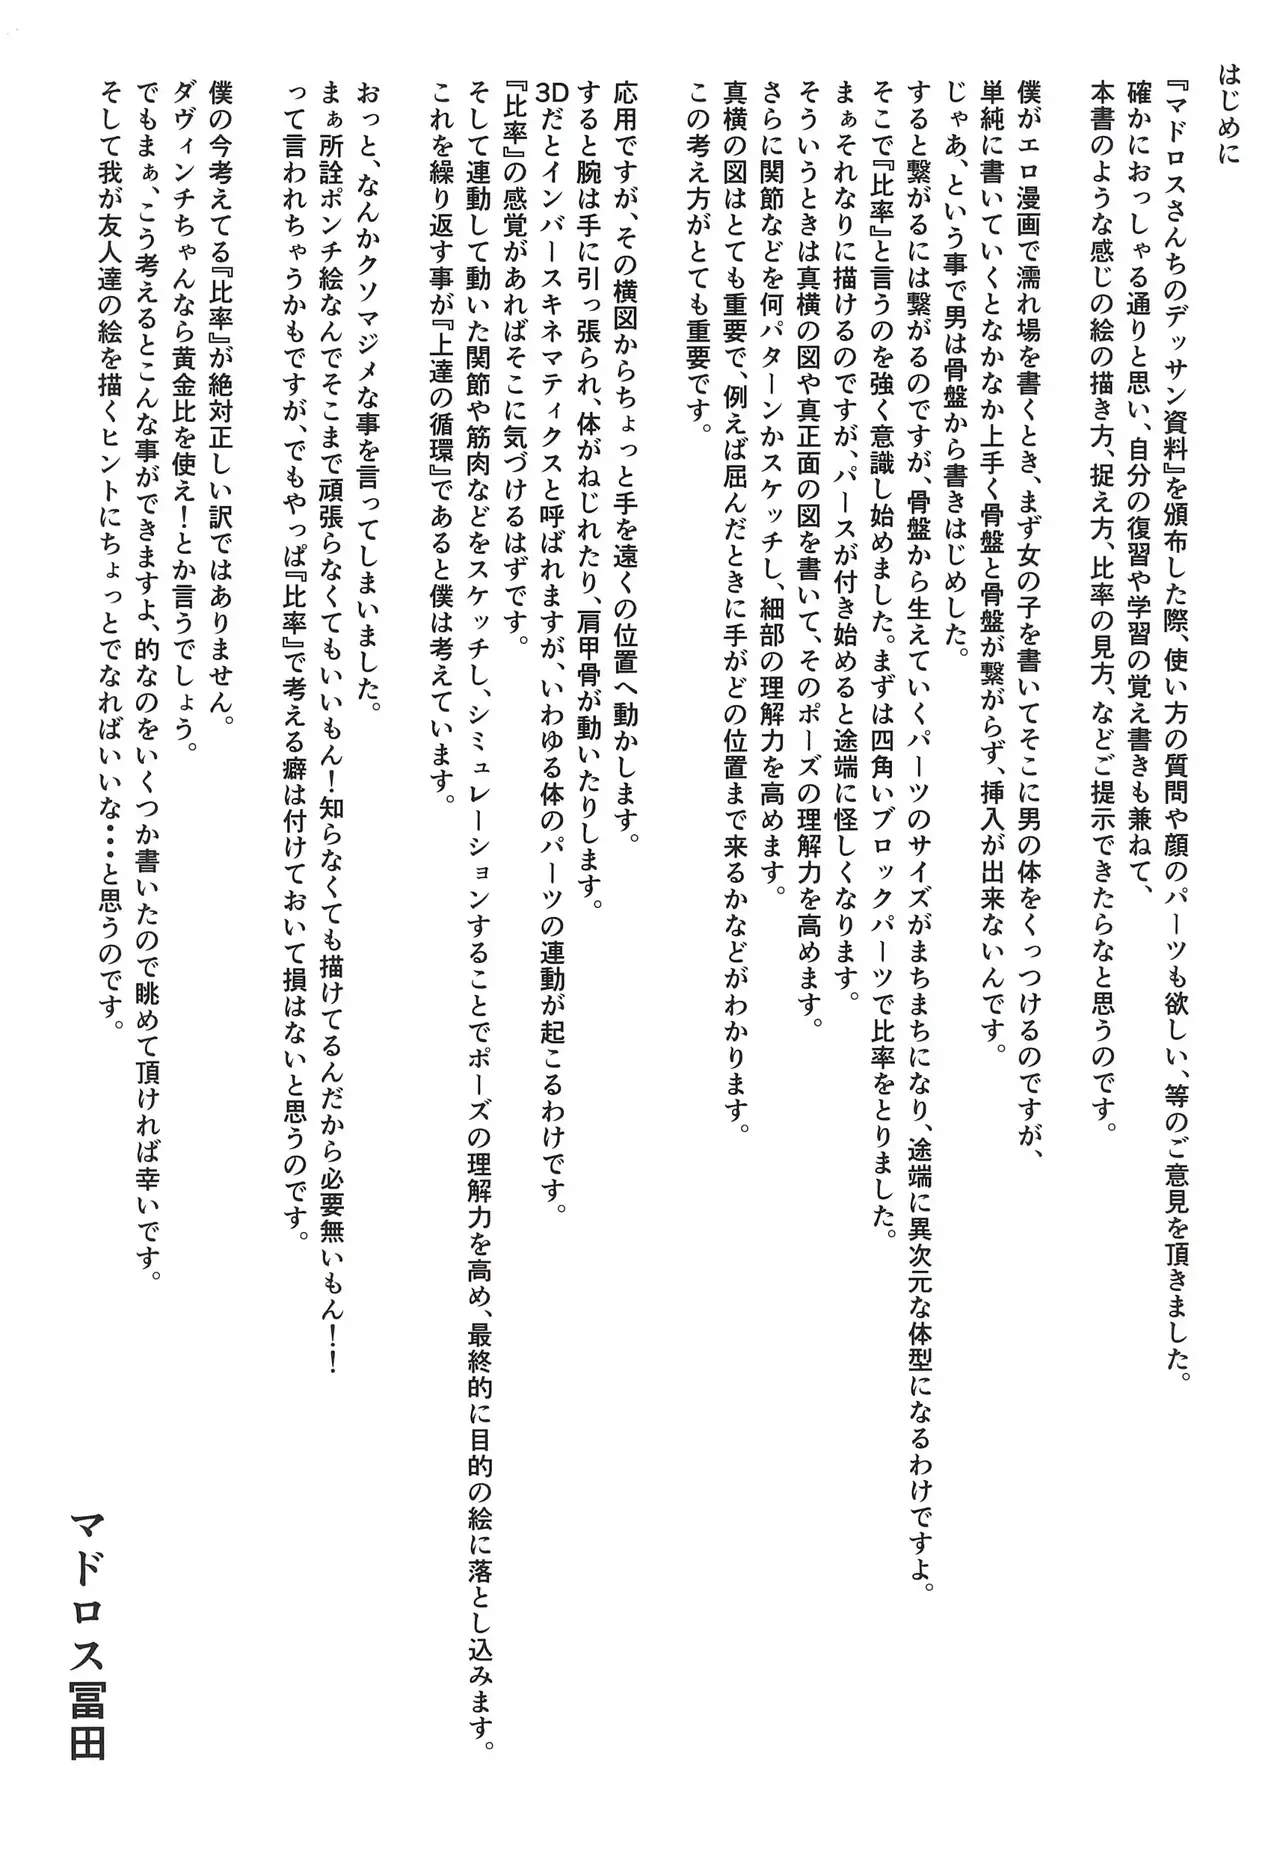 はじめに
『マドロスさんちのデッサン資料』を頒布した際、使い方の質問や顔のパーツも欲しい、等のご意見を頂きました。
確かにおっしゃる通りと思い、自分の復習や学習の覚え書きも兼ねて、
本書のような感じの絵の描き方、捉え方、比率の見方、などご提示できたらなと思うのです。
僕がエロ漫画で濡れ場を書くとき、まず女の子を書いてそこに男の体をくっつけるのですが、
単純に書いていくとなかなか上手く骨盤と骨盤が繋がらず、挿入が出来ないんです。
じゃあ、という事で男は骨盤から書きはじめした。
すると繋がるには繋がるのですが、骨盤から生えていくパーツのサイズがまちまちになり、途端に異次元な体型になるわけですよ。
そこで『比率』と言うのを強く意識し始めました。まずは四角いブロックパーツで比率をとりました。
まぁそれなりに描けるのですが、パースが付き始めると途端に怪しくなります。
そういうときは真横の図や真正面の図を書いて、そのポーズの理解力を高めます。
さらに関節などを何パターンかスケッチし、細部の理解力を高めます。
真横の図はとても重要で、例えば屈んだときに手がどの位置まで来るかなどがわかります。
この考え方がとても重要です。
応用ですが、その横図からちょっと手を遠くの位置へ動かします。
すると腕は手に引っ張られ、体がねじれたり、肩甲骨が動いたりします。
3Dだとインバースキネマティクスと呼ばれますが、いわゆる体のパーツの連動が起こるわけです。
『比率』の感覚があればそこに気づけるはずです。
そして連動して動いた関節や筋肉などをスケッチし、シミュレーションすることでポーズの理解力を高め、最終的に目的の絵に落とし込みます。
これを繰り返す事が『上達の循環』であると僕は考えています。
おっと、なんかクソマジメな事を言ってしまいました。
まぁ所詮ポンチ絵なんでそこまで頑張らなくてもいいもん！知らなくても描けてるんだから必要無いもん！！
って言われちゃうかもですが、でもやっぱ『比率』で考える癖は付けておいて損はないと思うのです。
僕の今考えてる『比率』が絶対正しい訳ではありません。
ダヴィンチちゃんなら黄金比を使え！とか言うでしょう。
でもまぁ、こう考えるとこんな事ができますよ、的なのをいくつか書いたので眺めて頂ければ幸いです。
そして我が友人達の絵を描くヒントにちょっとでなればいいな・・・と思うのです。
マドロス冨田